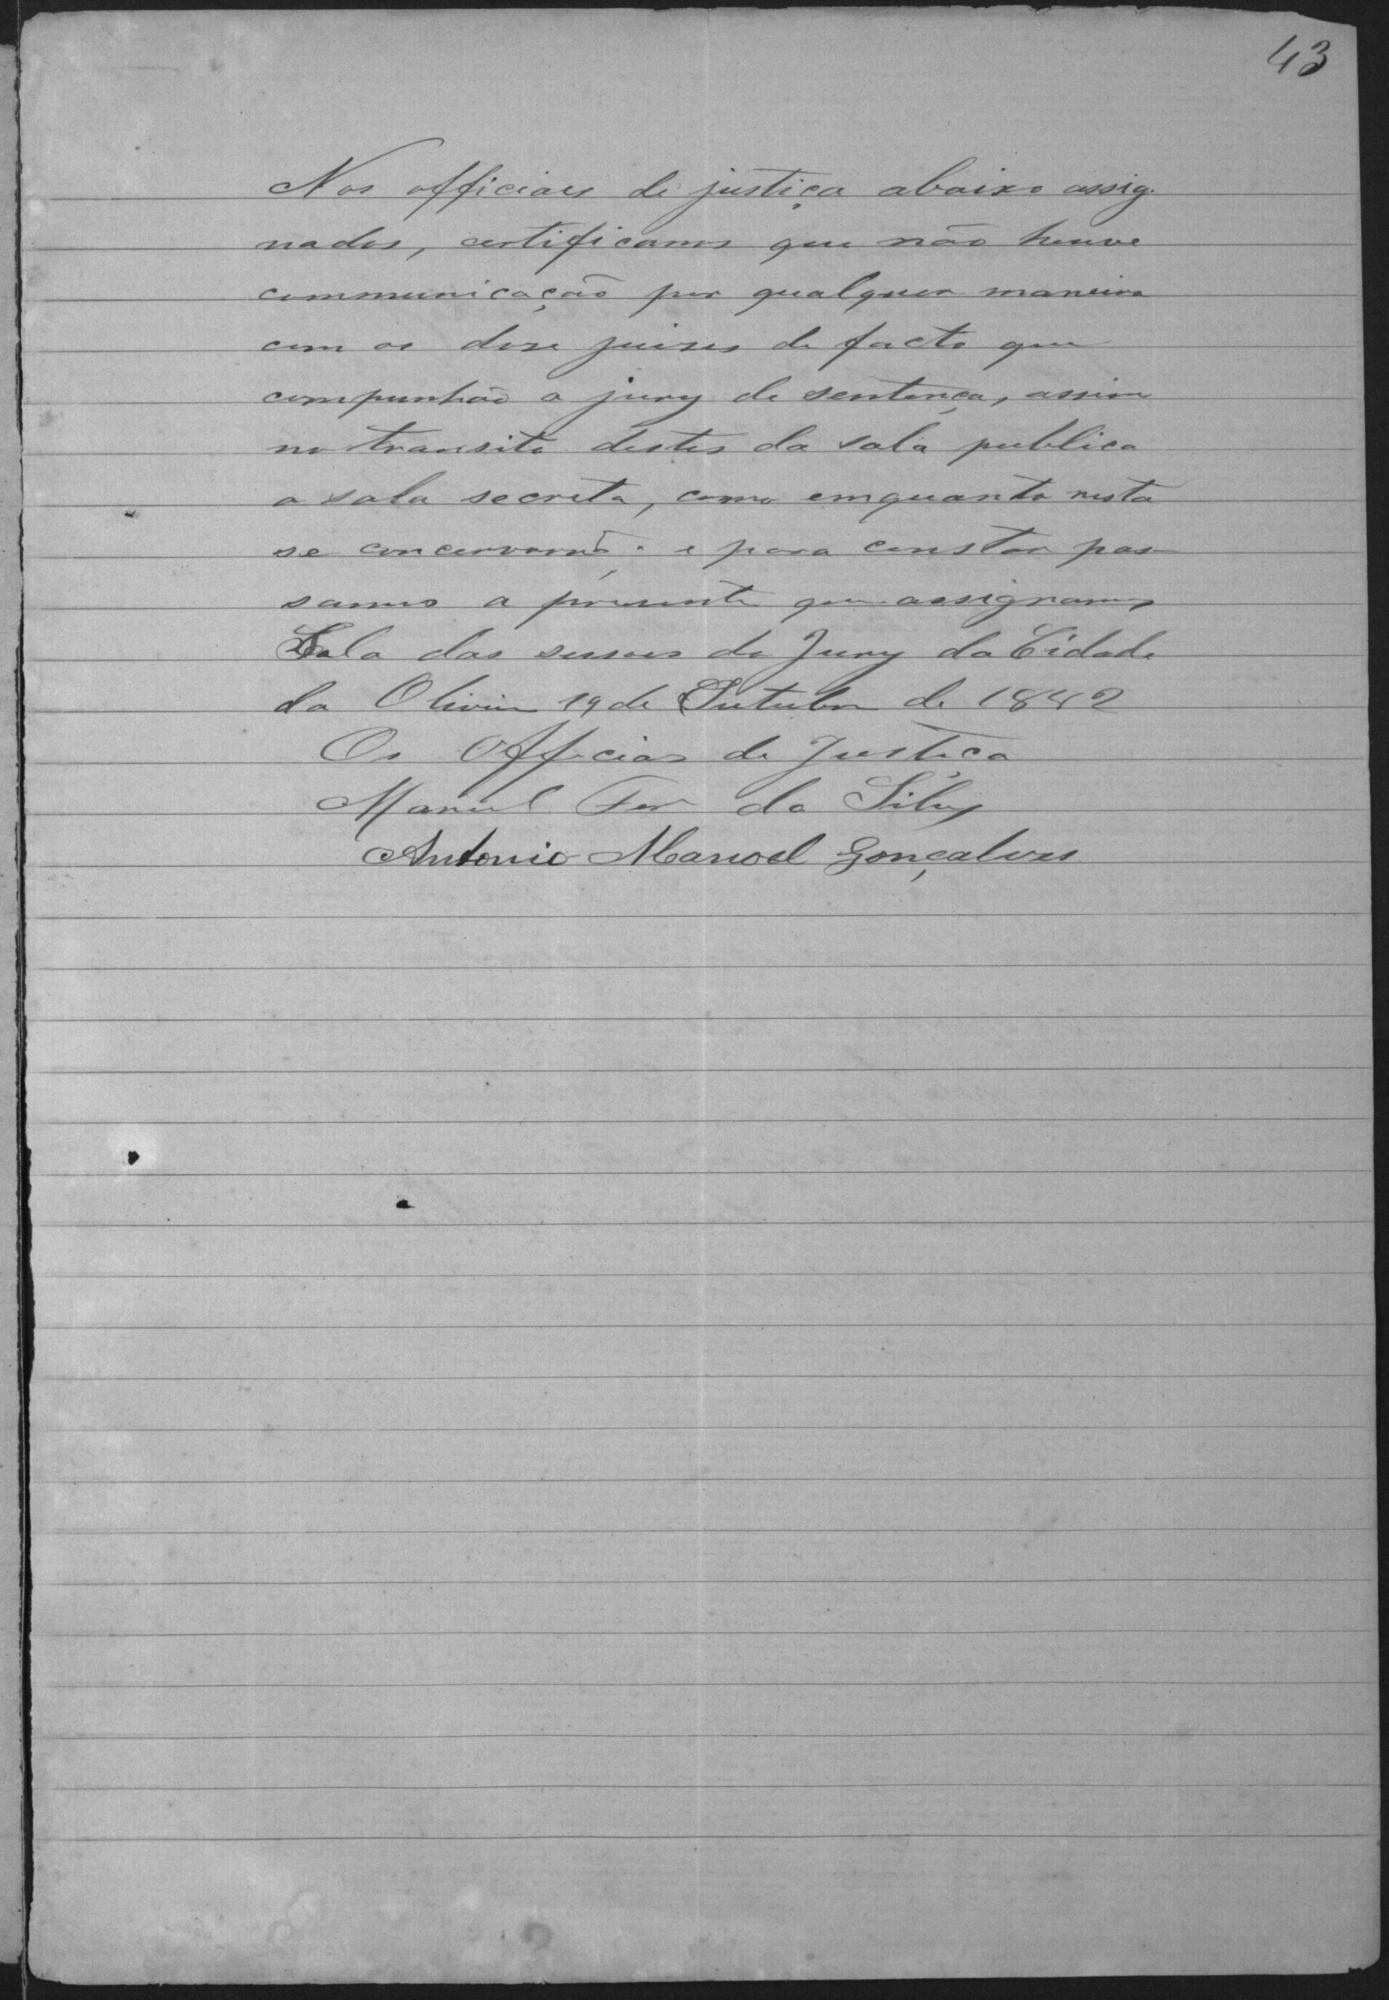 43
Nos officiaes de justiça abaixo assig-
nados, certificamos que não houve
communicação por qualquer maneira
com os dose juises de facto que
compunhão o jury de sentença, assim
no transito destes da sala publica
a sala secreta, como emquanto nesta
se concervarão; e para constar pas
samos a presente que assignamos
Sala das sessoes do Jury da Cidade
da Oliveira 19 de Outubro de 1882
Os Officiaes de Justiça
Manoel Fer da Silva
Antonio Manoel Gonçalves